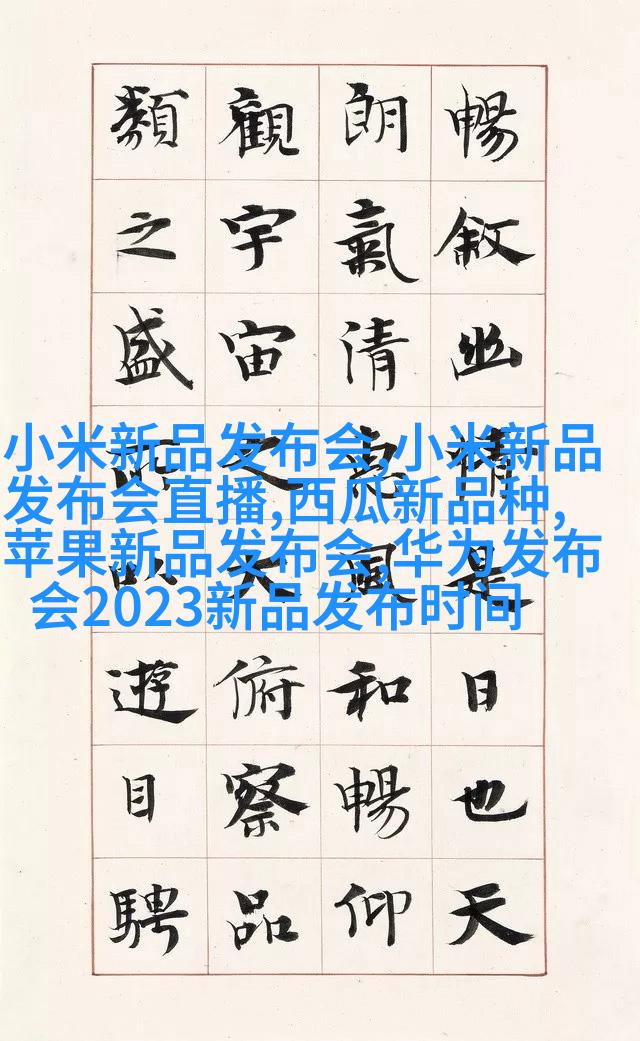 暢敘幽情是日也天
朗氣清惠風和暢仰
觀宇宙之大俯察品
類之盛所以遊目騁
小米新品发布会,小米新品
发布会直播,西瓜新品种,
苹果新品发布会,华为发布
会2023新品发布时间